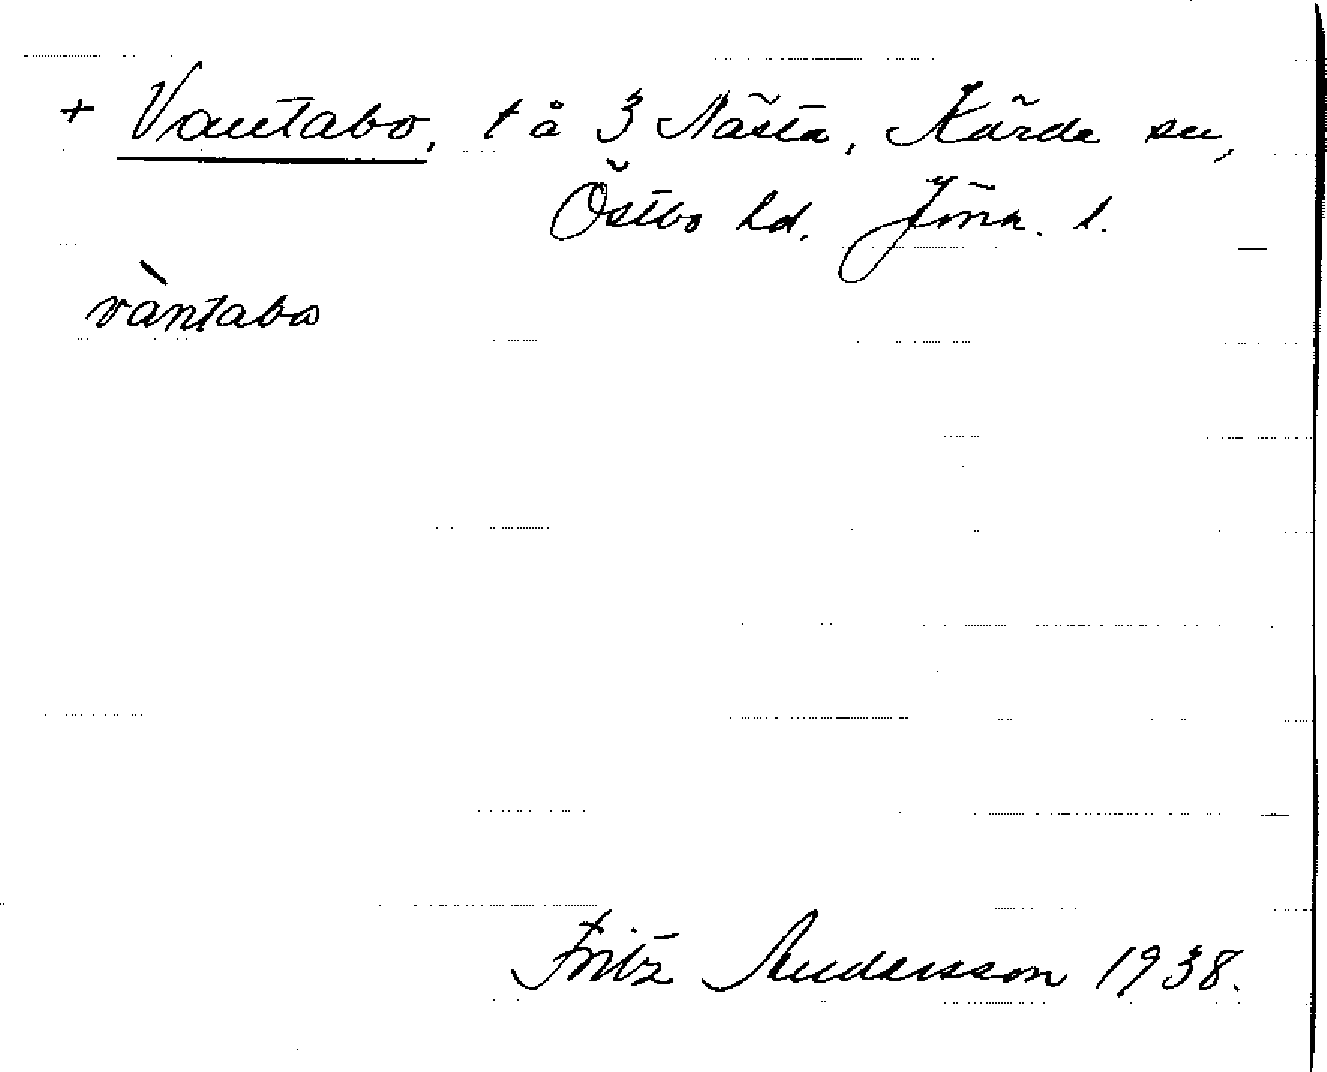 + Vantabo, t å 3 Nästa, Kärda sn,
Östbo hd. Jönk. l.
vàntabo
Fritz Andersson 1938.